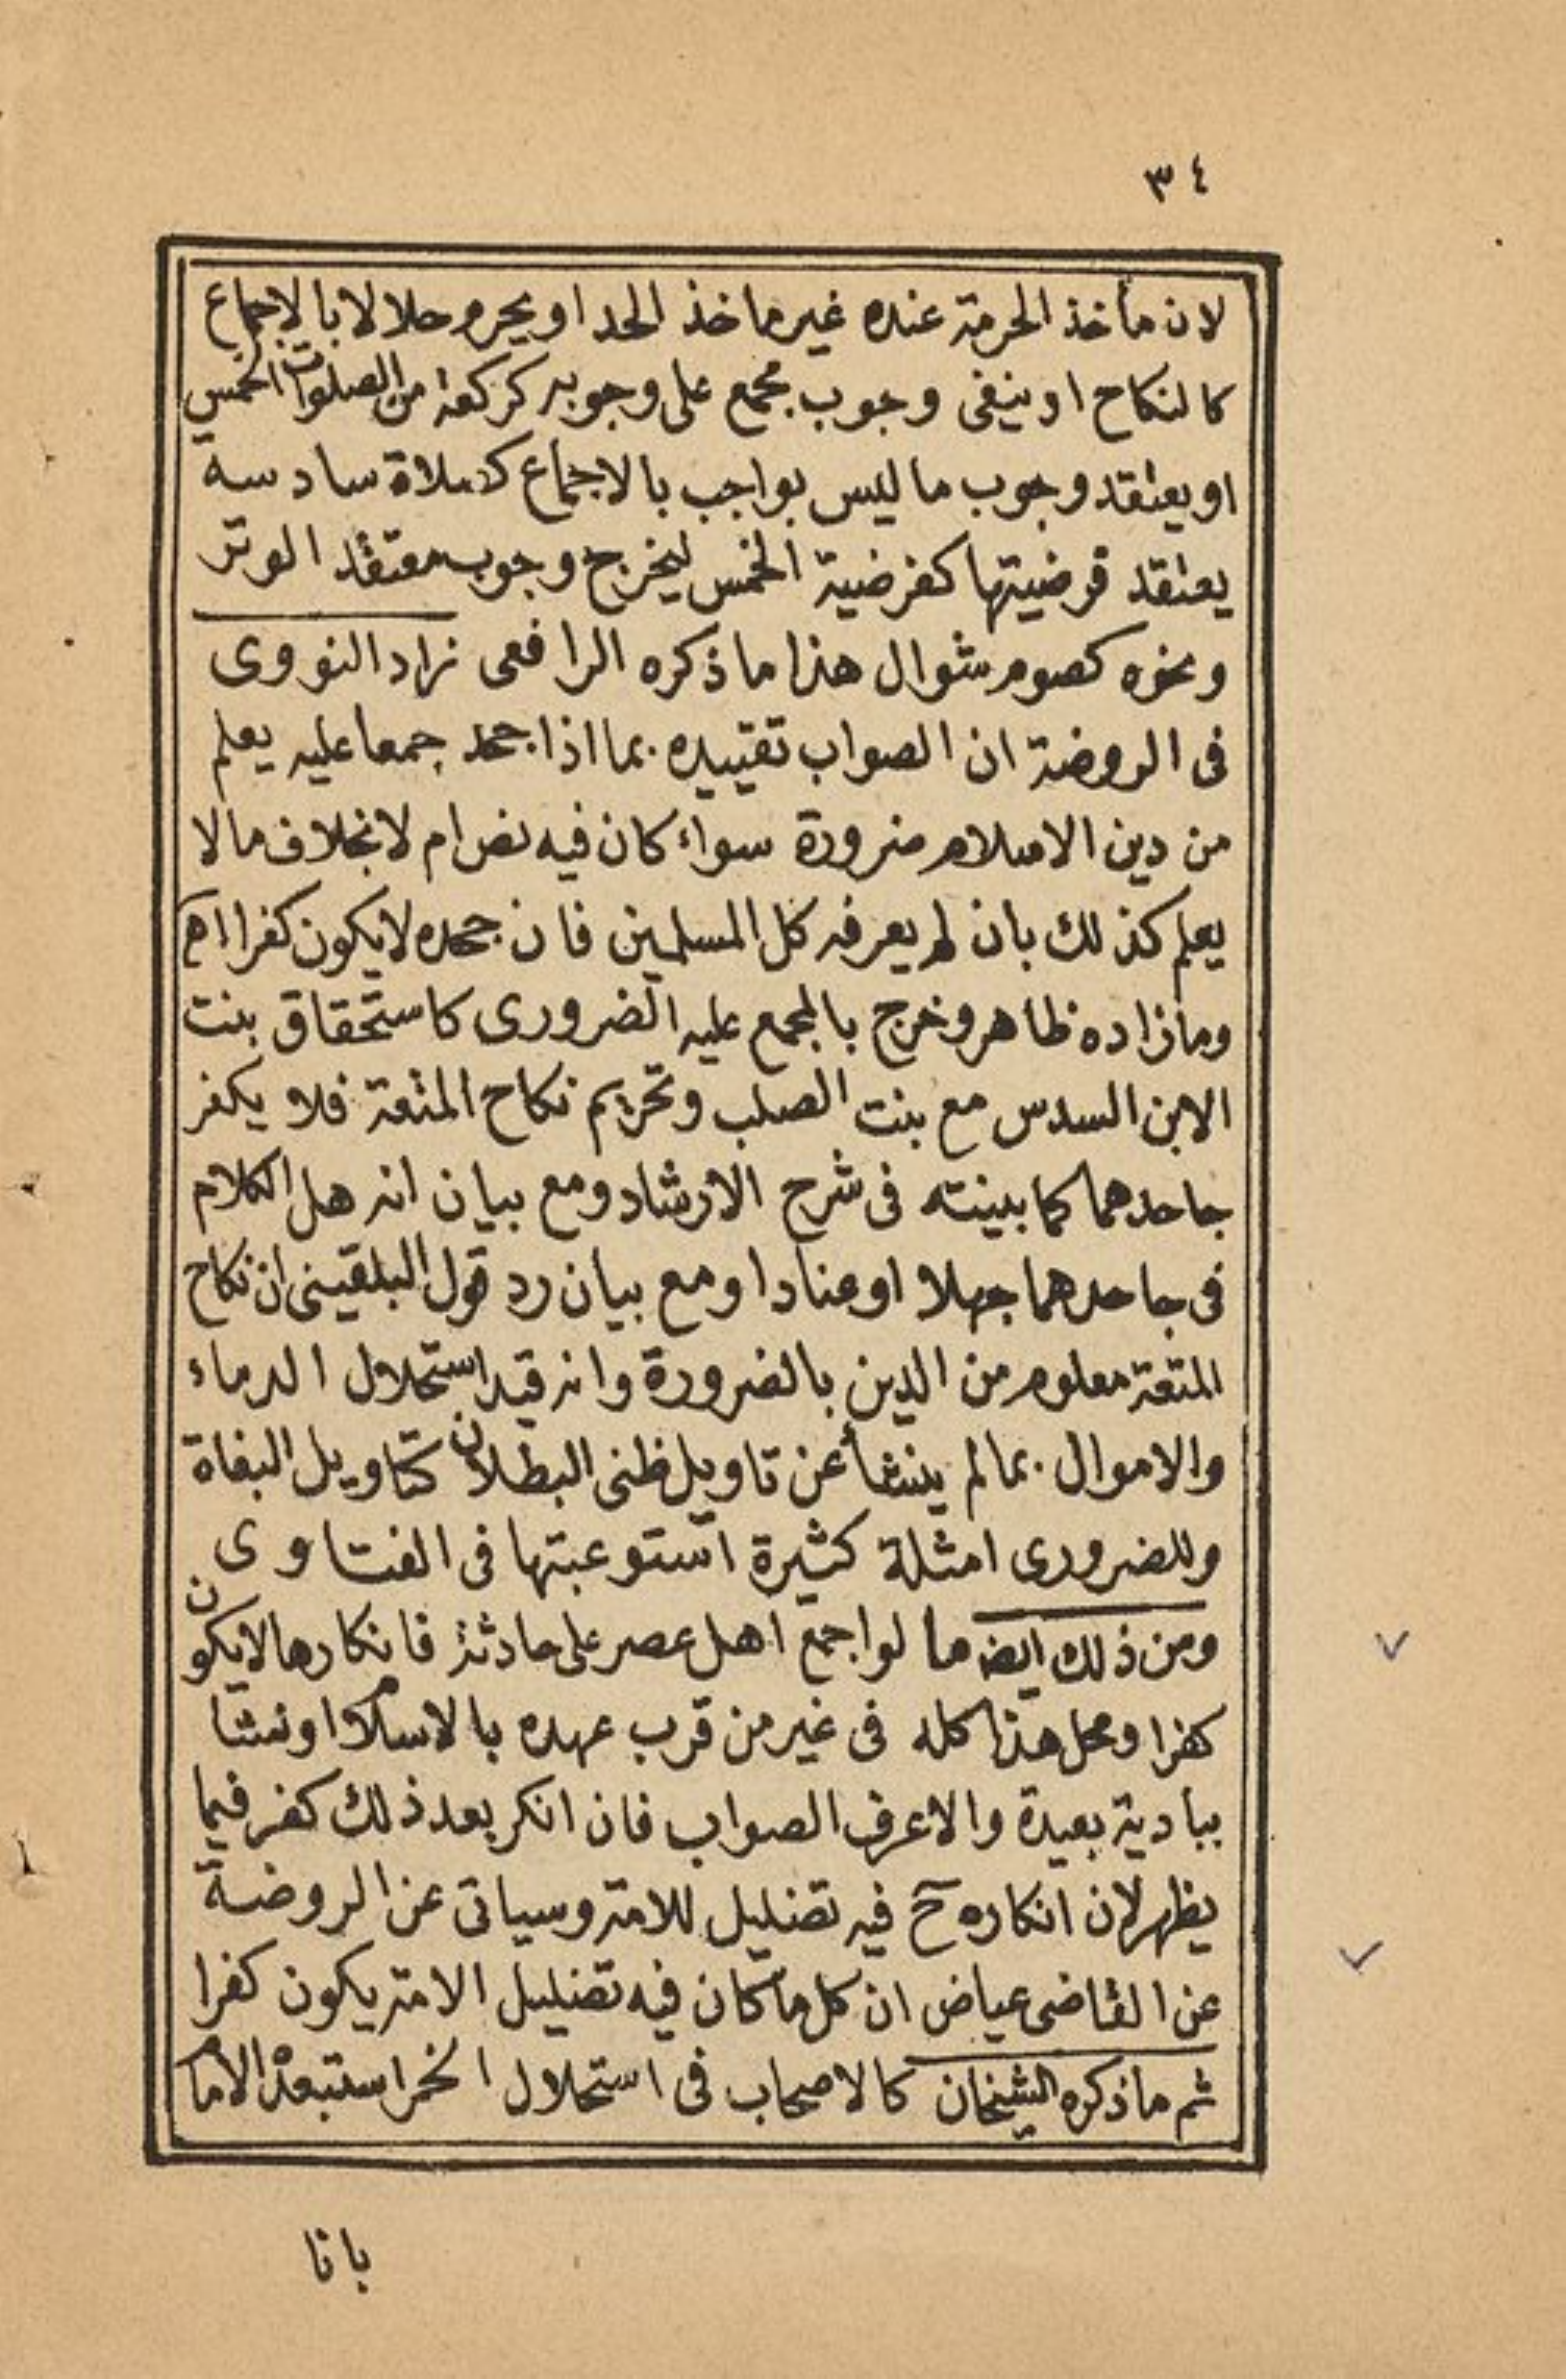 ٣٤
لان مأخذ الحرمة عنده غير ماخذ الحد او يحرم حلالا بالاجماع
كالنكاح او ينفى وجوب مجمع على وجوبه كركعة من الصلوات الخمس
او يعتقد وجوب ما ليس بواجب بالاجماع كصلاة سادسة
يعتقد فرضيتها كفرضية الخمس ليخرج وجوب معتقد الوتر
ونحوه كصوم شوال هذا ما ذكره الرافعى زاد النووى
فى الروضة ان الصواب تقييده بما اذا جحد مجمعا عليه يعلم
من دين الاسلام ضرورة سواء كان فيه نص ام لا بخلاف مالا
يعلم كذلك بان لم يعرفه كل المسلمين فان جحده لا يكون كفرا اه
وما زاده ظاهر وخرج بالمجمع عليه الضرورى كاستحقاق بنت
الابن السدس مع بنت الصلب وتحريم نكاح المتعة فلا يكفر
جاحدهما كما بينته فى شرح الارشاد ومع بيان انه هل الكلام
فى جاحدهما جهلا او عنادا ومع بيان رد قول البلقينى ان نكاح
المتعة معلوم من الدين بالضرورة وانه قيد استحلال الدماء
والاموال بمالم ينشأ عن تاويل ظنى البطلان كتاويل البغاة
وللضرورى امثلة كثيرة استوعبتها فى الفتاوى
ومن ذلك ايضه ما لو اجمع اهل عصر على حادثة فانكارها لا يكون
كفرا ومحل هذا كله فى غير من قرب عهده بالاسلام او نشا
ببادية بعيدة والا عرف الصواب فان انكر بعد ذلك كفر فيما
يظهر لان انكاره ح فيه تضليل للامة وسياتى عن الروضة
عن القاضى عياض ان كل ما كان فيه تضليل الامة يكون كفرا
ثم ما ذكره الشيخان كالاصحاب فى استحلال الخمر استبعده الامام
بانا